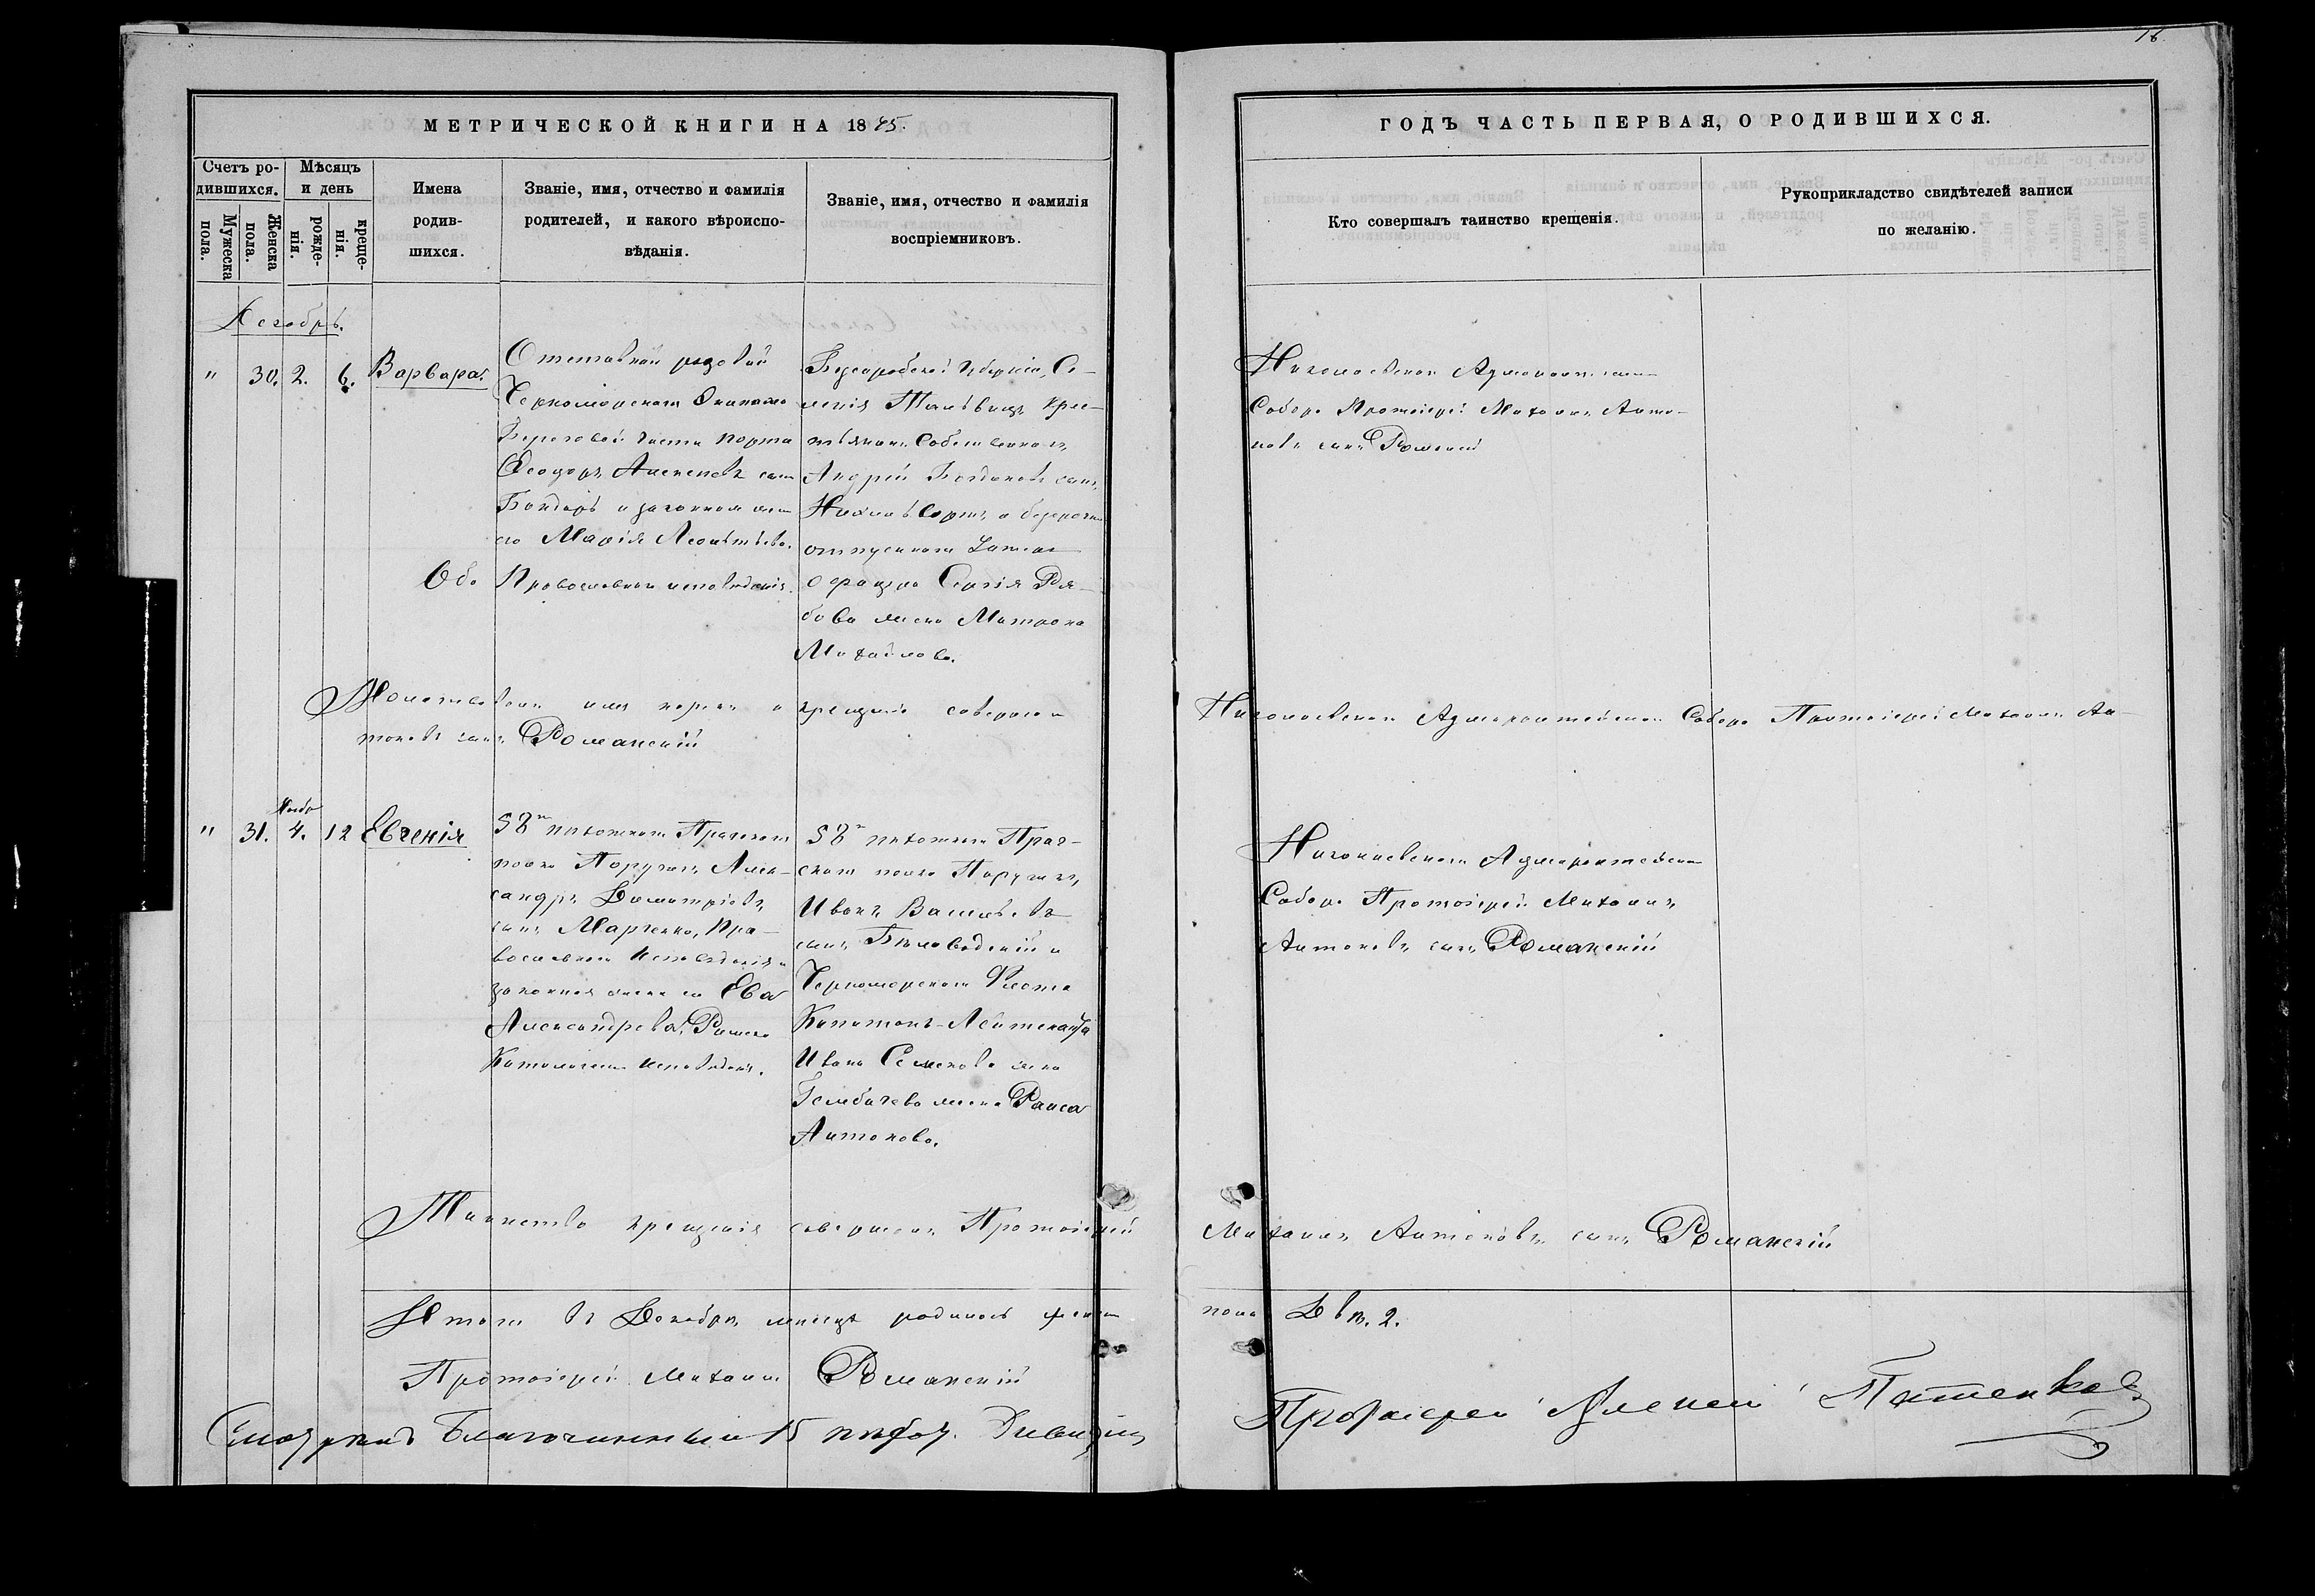 16
МЕТРИЧЕСКОЙ КНИГИ НА 1885.
ГОДЪ ЧАСТЬ ПЕРВАЯ, О РОДИВШИХСЯ.
Счетъ ро-
дившихся.
Мужеска
пола.
Женска
пола.
Мѣсяцъ
и день
рожде-
нія.
креще-
нія.
Имена
родив-
шихся.
Званіе, имя, отчество и фамилія
родителей, и какого вѣроиспо-
вѣданія.
Званіе, имя, отчество и фамилія
воспріемниковъ.
Кто совершалъ таинство крещенія.
Рукоприкладство свидѣтелей записи
по желанію.
Декабрь.
" 30. 2. 6. Варвара.
Отставной рядовой
Черноморскаго Экипажа
Береговой части порта
Ѳеодоръ сынъ
Бондарь и законная жена
его Марія Леонтьева.
Оба Православнаго исповѣданія.
Бессарабской Губерніи, Се-
ленія крес-
тьянинъ Собственникъ,
Андрей Богдановъ сынъ,
и безсрочно
отпускнаго
Сергія Ря-
бова жена Матрона
Михайлова.
Николаевскаго Адмиралтейскаго
Собора Протоіерей Михаилъ Анто-
новъ сынъ Романскій
Молитвовалъ имя нарекъ и крещеніе совершалъ Николаевскаго Адмиралтейскаго Собора Протоіерей Михаилъ Ан-
тоновъ сынъ Романскій
Ноября
" 31. 4. 12 Евгенія
58го пѣхотнаго Прагскаго
полка Поручикъ Алек-
сандръ Димитріевъ,
сынъ Марченко, Пра-
вославнаго Исповѣданія и
законная жена его Ева
Александрова, Римско
Католическаго Исповѣданія.
58го пѣхотнаго Праг-
скаго полка Поручикъ,
Иванъ Васильевъ
сынъ Бѣловодскій и
Черноморскаго Флота
Капитанъ-Лейтенанта
Ивана Семенова сына
жена Раиса
Антонова.
Николаевскаго Адмиралтейскаго
Собора Протоіерей Михаилъ,
Антоновъ, сынъ Романскій
Таинство крещенія совершалъ Протоіерей Михаилъ Антоновъ сынъ Романскій
Итого въ Декабрѣ мѣсяцѣ родилось женска пола Двѣ. 2.
Протоіерей Михаилъ Романскій
Смотрѣлъ Благочинный 15 пѣхот. Дивизіи, Протоіерей Алексей